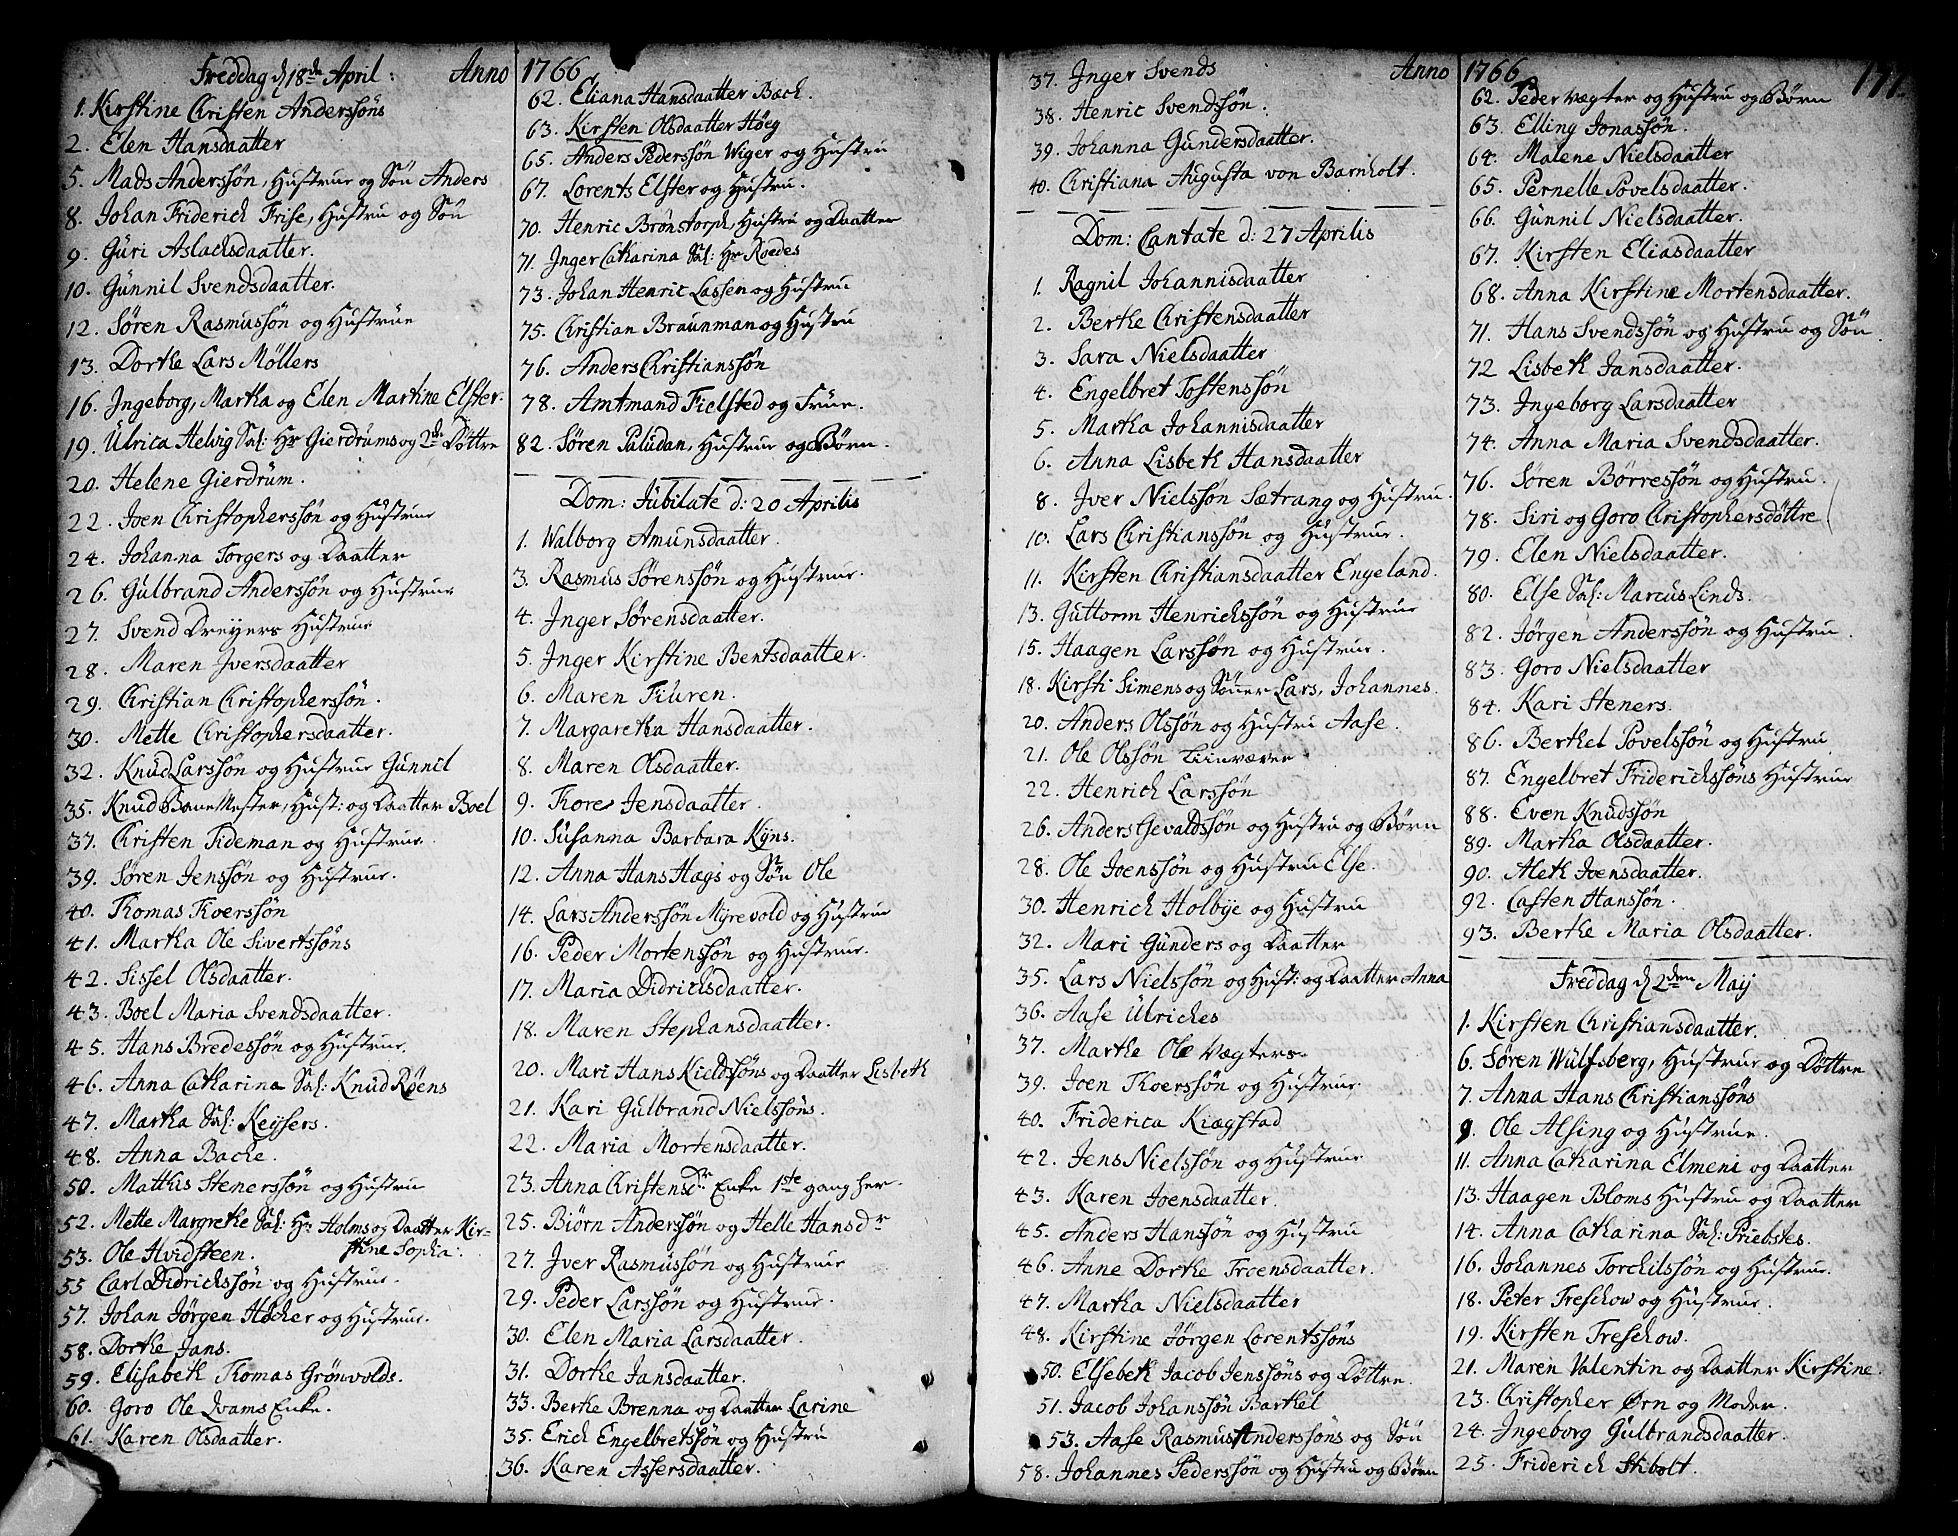 Freddag d 18de April: Anno
1. Kirstine Christen Anderssøns
2. Elen Hansdaatter
5. Mads Anderssøn, Hustrue og Søn Anders
8. Johan Friderich Frise, Hustru og Søn
9. Guri Aslachsdaatter.
10. Gunnil Svendsdaatter.
12. Søren Rasmussøn og Hustrue
13. Dorthe Lars Møllers
16. Ingeborg, Martha og Elen Martine Elster.
19. Ulrica Helvig Sal: Hr Gierdrums og 2de Døttre
20. Helene Gierdrum.
22. Joen Christopherssøn og Hustrue
24. Johanna Torgers og Daatter
26. Gulbrand Anderssøn og Hustrue
27. Svend Dreyers Hustrue
28. Maren Iversdaatter
29. Christian Christopherssøn.
30. Mette Christophersdaatter.
32. Knud Larssøn og Hustrue Gunnil
35. Knud Bane Mester, Hust: og Daatter Boel
37. Christen Tideman og Hustrue.
39. Søren Jenssøn og Hustrue.
40. Thomas Thoerssøn
41. Martha Ole Sivertssøns
42. Sissel Olsdaatter.
43. Boel Maria Svendsdaatter.
45. Hans Bredessøn og Hustrue.
46. Anna Catharina Sal: Knud Røens
47. Martha Sal: Keysers.
48. Anna Backe.
50. Matthis Stenerssøn og Hustru
52. Mette Margrethe Sal: Hr Holms og Daatter Kir-
stine Sophia.
53. Ole Hvidsteen.
55 Carl Didrichssøn og Hustrue.
57. Johan Jørgen Høcker og Hustrue.
58. Dorthe Jans.
59. Elisabeth Thomas Grönvolds.
60. Goro Ole Qvams Enke.
61. Karen Olsdaatter.
1766
62. Eliana Hansdaatter Bach.
63. Kirsten Olsdaatter Høeg
65. Anders Pederssøn Wiger og Hustru
67. Lorents Elster og Hustru.
70. Henric Brønstorph, Hustru og Daatter
71. Inger Catharina Sal: Hr Roedes
73. Johan Henric Lassen og Hustru
75. Christian Braunman og Hustru
76. Anders Christianssøn
78. Amtmand Fielsted og Frue.
82. Søren Paludan, Hustrue og Børn.
Dom: Jubilate d: 20 Aprilis
1. Walborg Amunsdaatter.
3. Rasmus Sørenssøn og Hustrue.
4. Inger Sørensdaatter.
5. Inger Kirstine Bentsdaatter.
6. Maren Fiuren.
7. Margaretha Hansdaatter.
8. Maren Olsdaatter.
9. Thore Jensdaatter.
10. Susanna Barbara Kyns.
12. Anna Hans Hægs og Søn Ole
14. Lars Anderssøn Myrevold og Hustrue
16. Peder Mortenssøn og Hustrue.
17. Maria Didrichsdaatter.
18. Maren Stephansdaatter.
20. Mari Hans Kieldssøns og Daatter Lisbeth
21. Kari Gulbrand Nielssøns.
22. Maria Mortensdaatter.
23. Anna Christensdr. Enke 1ste gang her.
25. Biørn Anderssøn og Helle Hansdr
27. Iver Rasmussøn og Hustrue
29. Peder Larssøn og Hustrue.
30. Elen Maria Larsdaatter.
31. Dorthe Jansdaatter.
33. Berthe Brenna og Daatter Carine
35. Erich Engelbretssøn og Hustru
36. Karen Assersdaatter.
37. Inger Svends Anno
38. Henric Svendssøn.
39. Johanna Gundersdaatter.
40. Christiana Augusta von Barnholt.
Dom: Cantate d: 27 Aprilis
1. Ragnil Johannisdaatter
2. Berthe Christensdaatter
3. Sara Nielsdaatter
4. Engelbret Tostenssøn
5. Martha Johannisdaatter
6. Anna Lisbeth Hansdaatter
8. Iver Nielssøn Sætrang og Hustru.
10. Lars Christianssøn og Hustrue.
11. Kirsten Christiansdaatter Engeland.
13. Guttorm Henrichssøn og Hustrue
15. Haagen Larssøn og Hustrue.
18. Kirsti Simens og Sønner Lars, Johannes.
20. Anders Olssøn og Hustru Aase.
21. Ole Olssøn
22. Henrich Larssøn
26. Anders Gevaldssøn og Hustru og Børn
28. Ole Joenssøn og Hustru Else.
30. Henrich Holbye og Hustru
32. Mari Gunders og Daatter
35. Lars Nielssøn og Hust: og Daatter Anna
36. Aase Ulriches
37. Marthe Ole Vægters
39. Joen Thoerssøn og Hustrue
40. Friderica Kiægstad
42. Jens Nielssøn og Hustrue
43. Karen Joensdaatter.
45. Anders Hanssøn og Hustru
46. Anne Dorthe Troensdaatter.
47. Martha Nielsdaatter
48. Kirstine Jørgen Lorentssøns
50. Elsebeth Jacob Jenssøns og Døttre.
51. Jacob Johanssøn Barthel
53. Aase Rasmus Anderssøns og Søn
58. Johannes Pederssøn og Hustru og Børn
1766 177.
62. Peder Vægter og Hustru og Børn
63. Elling Jonassøn.
64. Malene Nielsdaatter
65. Pernelle Povelsdaatter.
66. Gunnil Nielsdaatter.
67. Kirsten Eliasdaatter
68. Anna Kirstine Mortensdaatter.
71. Hans Svendssøn og Hustru og Søn
72 Lisbeth Jansdaatter.
73. Ingeborg Larsdaatter
74. Anna Maria Svendsdaatter.
76. Søren Børressøn og Hustru.
78. Siri og Goro Christophersdøttre
79. Elen Nielsdaatter.
80. Else Sal: Marcus Linds.
82. Jørgen Anderssøn og Hustru.
83. Goro Nielsdaatter
84. Kari Steners.
86. Berthel Povelssøn og Hustru
87. Engelbret Friderichssøns Hustrue
88. Even Knudssøn
89. Martha Olsdaatter.
90. Aleth Joensdaatter.
92. Casten Hanssøn.
93. Berthe Maria Olsdaatter.
Freddag d 2den Maij
1. Kirsten Christiansdaatter.
6. Søren Wulfsberg, Hustrue og Døttre
7. Anna Hans Christianssøns
9. Ole Alsing og Hustrue.
11. Anna Catharina Elmeni og Daatter
13. Haagen Bloms Hustru og Daatter
14. Anna Catharina Sal: Priebstes.
16. Johannes Torchilssøn og Hustrue.
18. Peter Treschow og Hustrue.
19. Kirsten Treschow.
21. Maren Valentin og Daatter Kirstine.
23. Christopher Ørn og Moder.
24. Ingeborg Gulbrandsdaatter.
25. Friderich Stibolt.